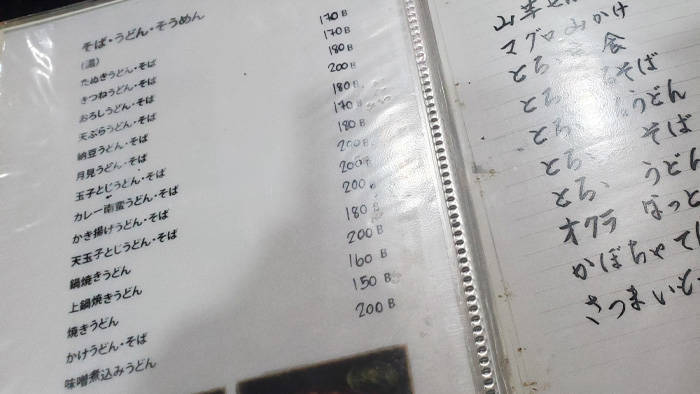 そば・うどん・そうめん
(温)
たぬきうどん・そば 170 B
きつねうどん・そば 170 B
おろしうどん・そば 180 B
天ぷらうどん・そば 200 B
納豆うどん・そば 180 B
月見うどん・そば 170 B
玉子とじうどん・そば 180 B
カレー南蛮うどん・そば 200 B
かき揚げうどん・そば 200 B
天玉子とじうどん・そば 200 B
鍋焼きうどん 180 B
上鍋焼きうどん 200 B
焼きうどん 160 B
かけうどん・そば 150 B
味噌煮込みうどん 200 B
マグロ山かけ
とろ
とろ そば
とろ うどん
とろ そば
とろ うどん
オクラ なっと
かぼちゃ
さつまいも